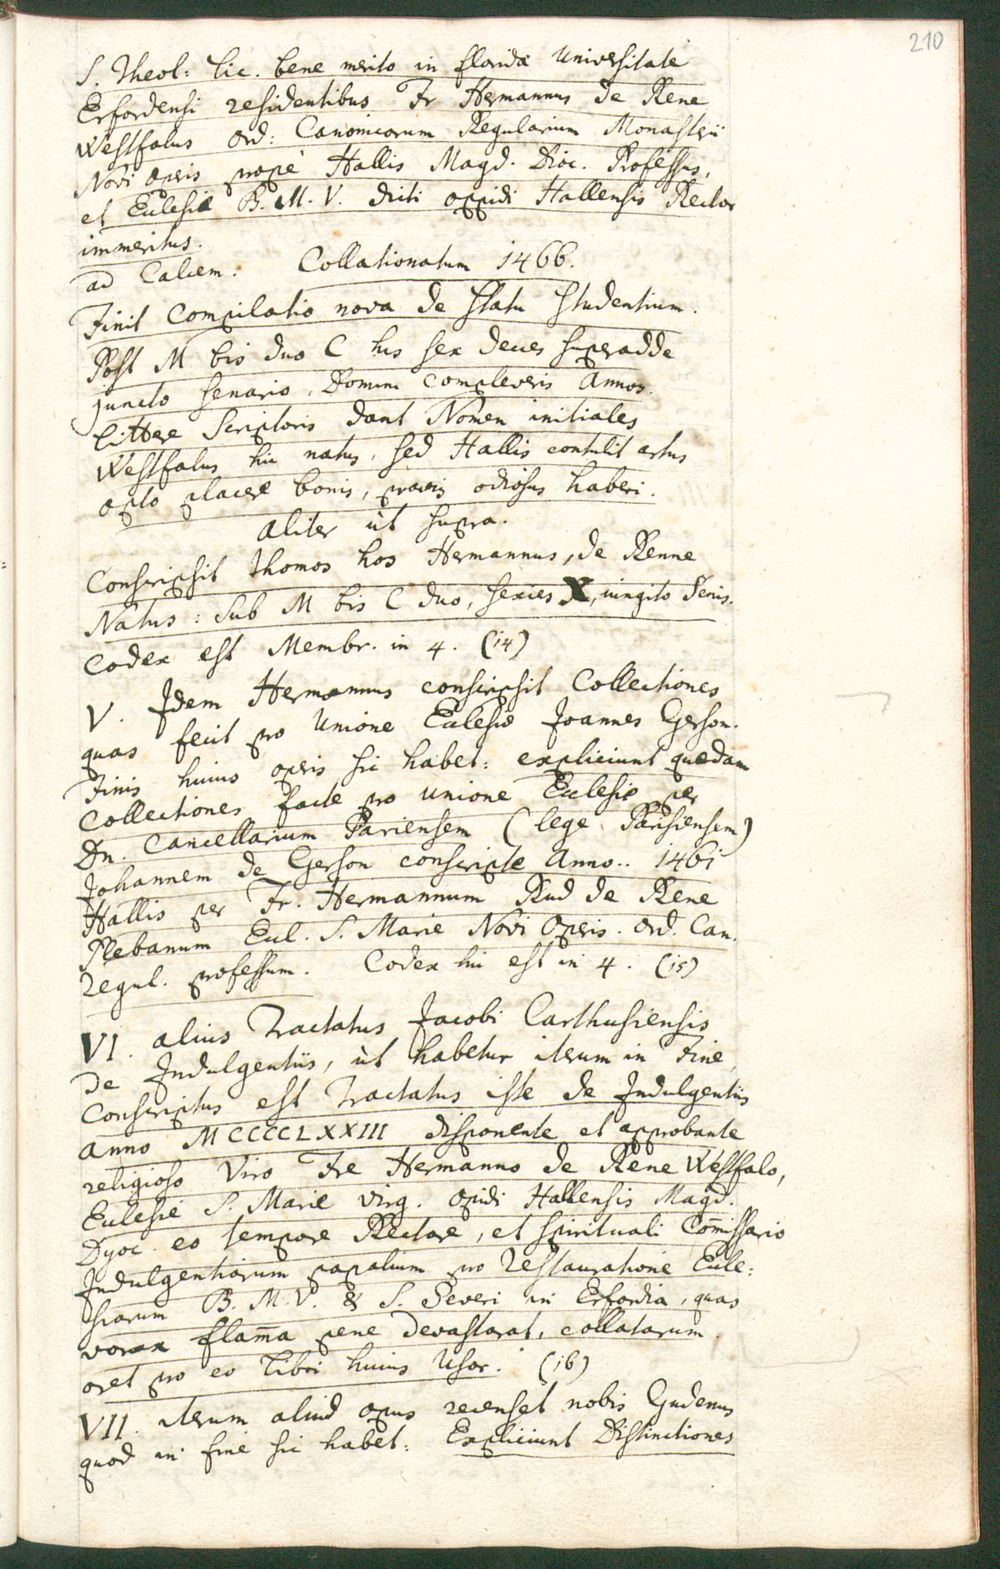 210
S. Theol: Lic. bene merito in floridâ Universitate
Erfordensi residentibus Fr Hermannus de Rene
Westfalus Ord: Canonicorum Regularium Monasterii
Novi Operis propè Hallis Magd. Dioc. Professus,
et Eclesiæ B. M. V. dicti oppidi Hallensis Rector
immeritus.
ad Calcem. Collationatum 1466.
Finit Compilatio nova de statu studentium.
Post M bis duo C his sex decies superadde
juncto senario, Domini compleveris Annos.
Littere Scriptoris dant Nomen initiales
Westfalus hic natus, sed Hallis contulit artus
opto placere bonis, pravis odiosus haberi.
aliter ùt supra.
Conscripsit thomos hos Hermannus, de Renne
Natus: sub M bis C duo, sexies X, iungito Senis.
Codex est Membr. in 4. (14)
V. Idem Hermannus conscripsit Collectiones
quas fecit pro Unione Eclesiæ Joannes Gerson.
Finis huius operis sic habet: expliciunt quædam
Collectiones facte pro unione Eclesie per
Dn. Cancellarium Pariensem (lege Parisiensem)
Johannem de Gerson conscripte Anno.. 1461
Hallis per Fr. Hermannum Rud de Rene
Plebanum Ecl. S. Marie Novi Operis. Ord. Can.
regul. professum. Codex hic est in 4. (15)
VI. alius Tractatus Jacobi Carthusiensis
de Indulgentiis, ùt habetur iterum in Fine,
Conscriptus est Tractatus iste de Indulgentiis
anno MCCCCLXXIII disponente et approbante
religioso Viro Fre Hermanno de Rene Westfalo,
Eclesie S. Marie virg. opidi Hallensis Magd.
Dyoc. eo tempore Rectore, et spirituali Comissario
Indulgentiarum papalium pro restauratione Ecle:
siarum B. M. V. & S. Severi in Erfordia, quas
vorax flama pene devastarat, collatarum.
oret pro eo libri huius Usor. (16)
VII. iterum aliud opus recenset nobis Gudenus
quod in fine sic habet: Expliciunt Distinctiones